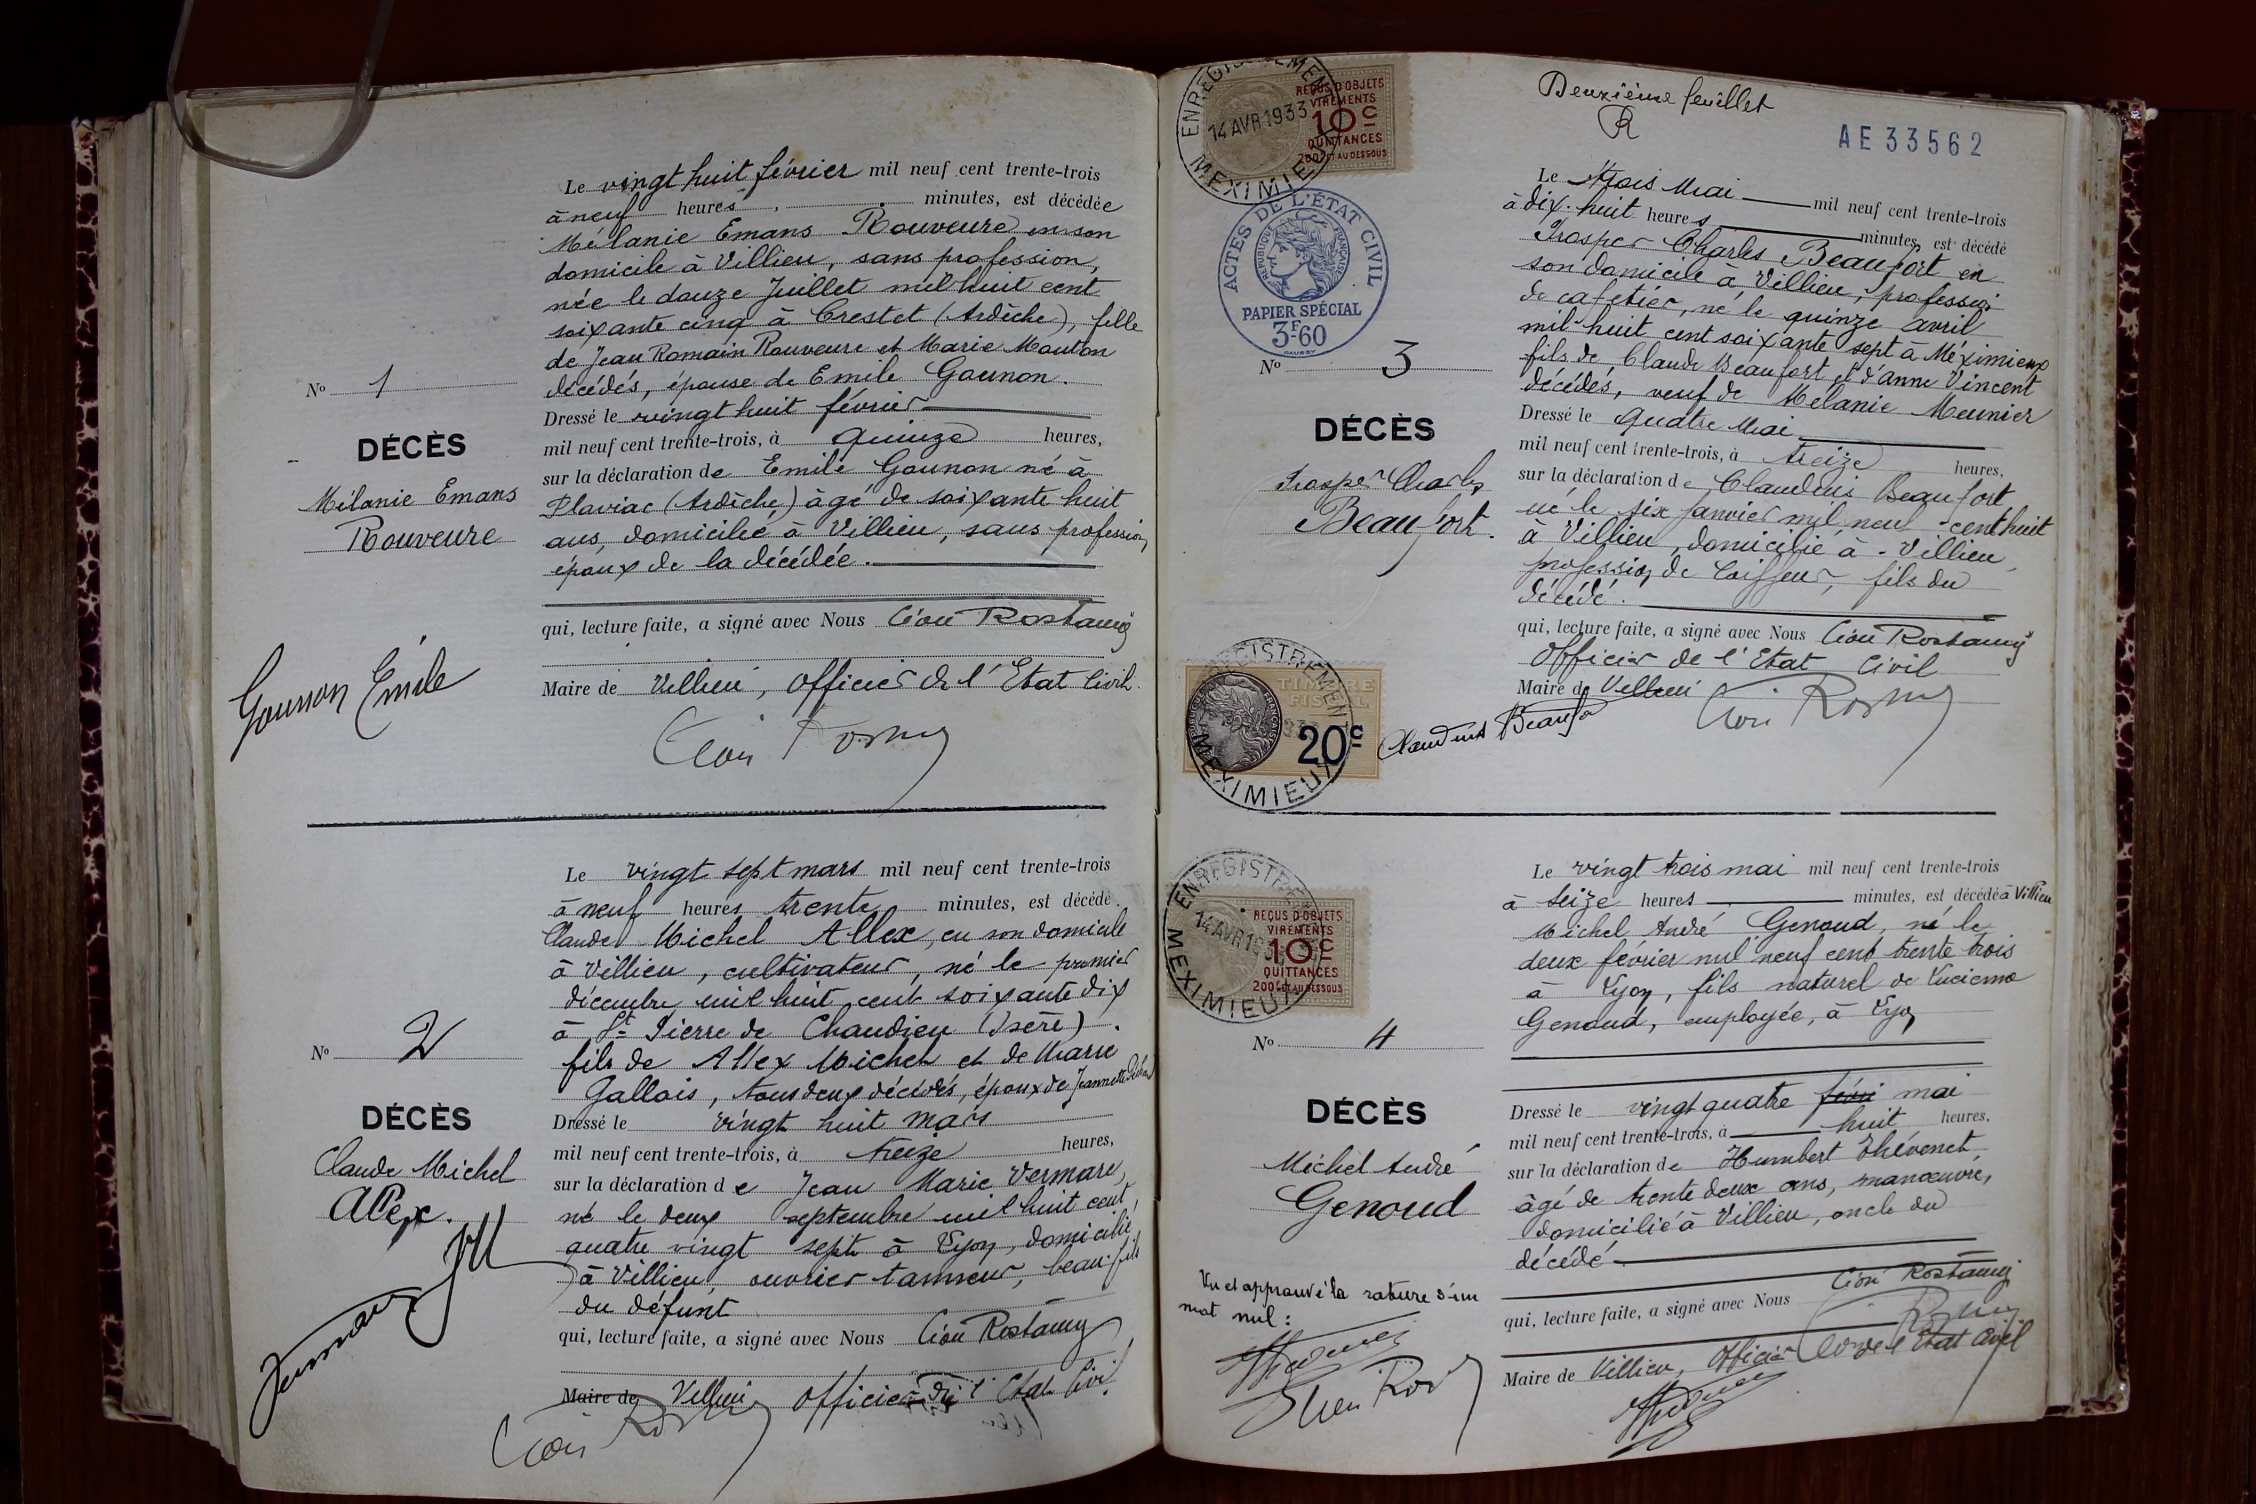 Le vingt huit février mil neuf cent trente-trois
à neuf heures minutes, est décédée
Mélanie Emans Rouveure en son
domicile à Villieu, sans profession,
née le douze Juillet mil huit cent
soixante cinq à Crestet (Ardèche), fille
de Jean Romain Rouveure et Marie Mouton
décédés, épouse de Emile Gounon.
No 1
DÉCÈS
Mélanie Emans
Rouveure
Dressé le vingt huit février
mil neuf cent trente-trois, à quinze heures,
sur la déclaration de Emile Gounon né à
Plaviac (Ardèche) âgé de soixante huit
ans, domicilié à Villieu, sans profession,
époux de la décédée.
qui, lecture faite, a signé avec Nous Rostaing
Maire de Villieu, Officier de l'Etat Civil.
Gounon Emile
Le vingt sept mars mil neuf cent trente-trois
à neuf heures trente minutes, est décédé
Claude Michel Allex, en son domicile
à Villieu, cultivateur, né le premier
décembre mil huit cent soixante dix
à St Pierre de Chandieu (Isère).
fils de Allex Michel et de Marie
Gallois, tous deux décédés, époux de Jeannette
No 2
DÉCÈS
Claude Michel
Allex.
Dressé le vingt huit mars
mil neuf cent trente-trois, à treize heures,
sur la déclaration de Jean Marie Vermare,
né le deux septembre mil huit cent
quatre vingt sept à Lyon, domicilié
à Villieu, ouvrier tanneur, beau-fils
du défunt
qui, lecture faite, a signé avec Nous Rostaing
Maire de Villieu Officier de l'Etat Civil
Deuxième feuillet
AE 33562
ENREGISTREMENT
14 AVR 1933
MEXIMIEUX
REÇUS D'OBJETS
VIREMENTS
10c
QUITTANCES
200F ET AU DESSOUS
ACTES DE L'ÉTAT CIVIL
RÉPUBLIQUE FRANÇAISE
PAPIER SPÉCIAL
3F60
Le trois Mai mil neuf cent trente-trois
à dix-huit heures minutes, est décédé
Prosper Charles Beaufort en
son domicile à Villieu, profession
de cafetier, né le quinze avril
mil huit cent soixante sept à Méximieux
fils de Claude Beaufort et d'Anne Vincent
décédés, veuf de Mélanie Meunier
No 3
DÉCÈS
Prosper Charles
Beaufort.
Dressé le quatre Mai
mil neuf cent trente-trois, à treize heures,
sur la déclaration de Claudius Beaufort
né le six janvier mil neuf cent huit
à Villieu, domicilié à Villieu,
profession de Coiffeur, fils du
décédé.
qui, lecture faite, a signé avec Nous Rostaing
Officier de l'Etat Civil
Maire de Villieu
Claudius Beaufo
ENREGISTREMENT
TIMBRE
FISCAL
20c
MEXIMIEUX
ENREGISTRE
14 AVR 19
MEXIMIEUX
REÇUS D'OBJETS
VIREMENTS
10c
QUITTANCES
200F ET AU DESSOUS
Le vingt trois mai mil neuf cent trente-trois
à seize heures minutes, est décédé à Villieu
Michel André Genoud, né le
deux février mil neuf cent trente trois
à Lyon, fils naturel de Lucienne
Genoud, employée, à Lyon
No 4
DÉCÈS
Michel André
Genoud
Dressé le vingt quatre mai
mil neuf cent trente-trois, à huit heures,
sur la déclaration de Humbert Thévenet,
âgé de trente deux ans, manœuvre,
domicilié à Villieu, oncle du
décédé
Vu et approuvé la rature d'un
mot nul:
qui, lecture faite, a signé avec Nous Rostaing
Maire de Villieu, Officier de l'Etat Civil